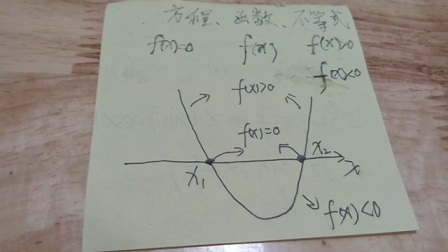 方程、函数、不等式
f(x)=0 f(x) f(x)>0
f(x)<0
f(x)>0
f(x)=0
x₁ x₂ x
f(x)<0